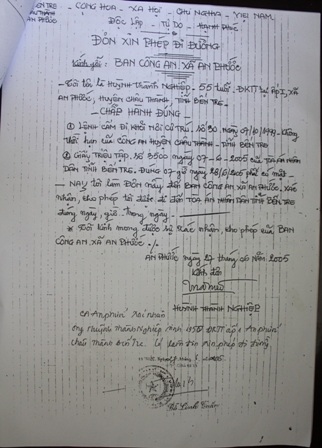 CỘNG HOÀ - XÃ HỘI - CHỦ NGHĨA - VIỆT NAM
ĐỘC LẬP - TỰ DO - HẠNH PHÚC
AN PHƯỚC
ĐƠN XIN PHÉP ĐI ĐƯỜNG
Kính gởi: BAN CÔNG AN. XÃ AN PHƯỚC
- Tôi tên là HUỲNH THÀNH NGHIỆP. 55 tuổi. ĐKTT tại ẤP I, XÃ
AN PHƯỚC, HUYỆN CHÂU THÀNH TỈNH BẾN TRE.
- CHẤP HÀNH ĐÚNG
① LỆNH CẤM ĐI KHỎI NƠI CƯ TRÚ, Số
hạn của CÔNG AN HUYỆN CHÂU THÀNH - TỈNH BẾN TRE
② GIẤY TRIỆU TẬP. Số ngày 07-6-2005 CỦA TOÀ ÁN NHÂN
DÂN TỈNH BẾN TRE. ĐÚNG 07 giờ ngày 28/6/2005 phải có mặt -
- NAY tôi làm ĐƠN này BAN CÔNG AN XÃ AN PHƯỚC, XÁC
nhận, cho phép tôi được đi đến TOÀ ÁN NHÂN DÂN TỈNH BẾN TRE
đúng ngày, giờ trong ngày.
* Tôi kính mong được sự XÁC NHẬN, cho phép của BAN
CÔNG AN. XÃ AN PHƯỚC ./.
AN PHƯỚC ngày 27 tháng 06 NĂM 2005
Kính đơn
HUỲNH THÀNH NGHIỆP
CA An phước xác nhận
ông Huỳnh Thành Nghiệp sinh 1950 ĐKTT ấp 1 An phước
Châu Thành Bến Tre. Có làm đơn xin phép đi đường.